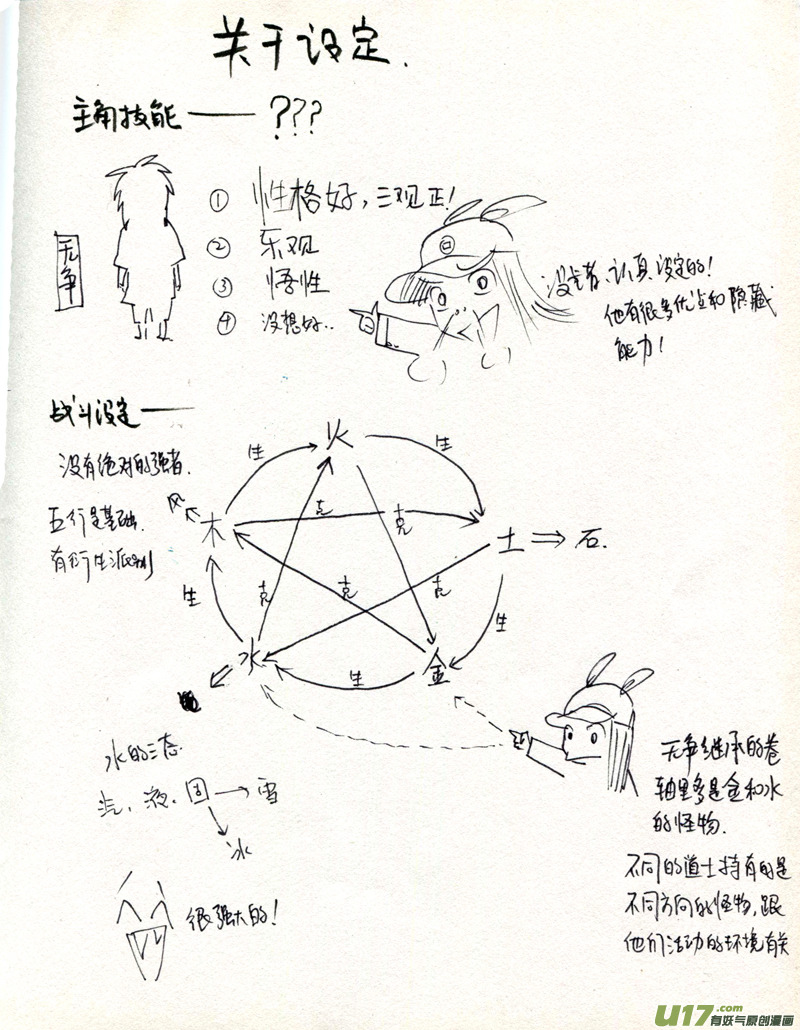 关于设定.
主角技能——???
无争
① 性格好,三观正!
② 乐观
③ 悟性
④ 没想好..
认真设定的!
他有很多优点和隐藏
能力!
战斗设定——
没有绝对的强者.
五行是基础.
有衍生派别
火
生
生
风
木
克
克
土
石.
生
克
克
克
生
水
生
金
水的三态
汽、液、固→雪
冰
很强大的!
无争继承的卷
轴里多是金和水
的怪物.
不同的道士持有的是
不同方向的怪物,跟
他们活动的环境有关
U17.com
有妖气原创漫画